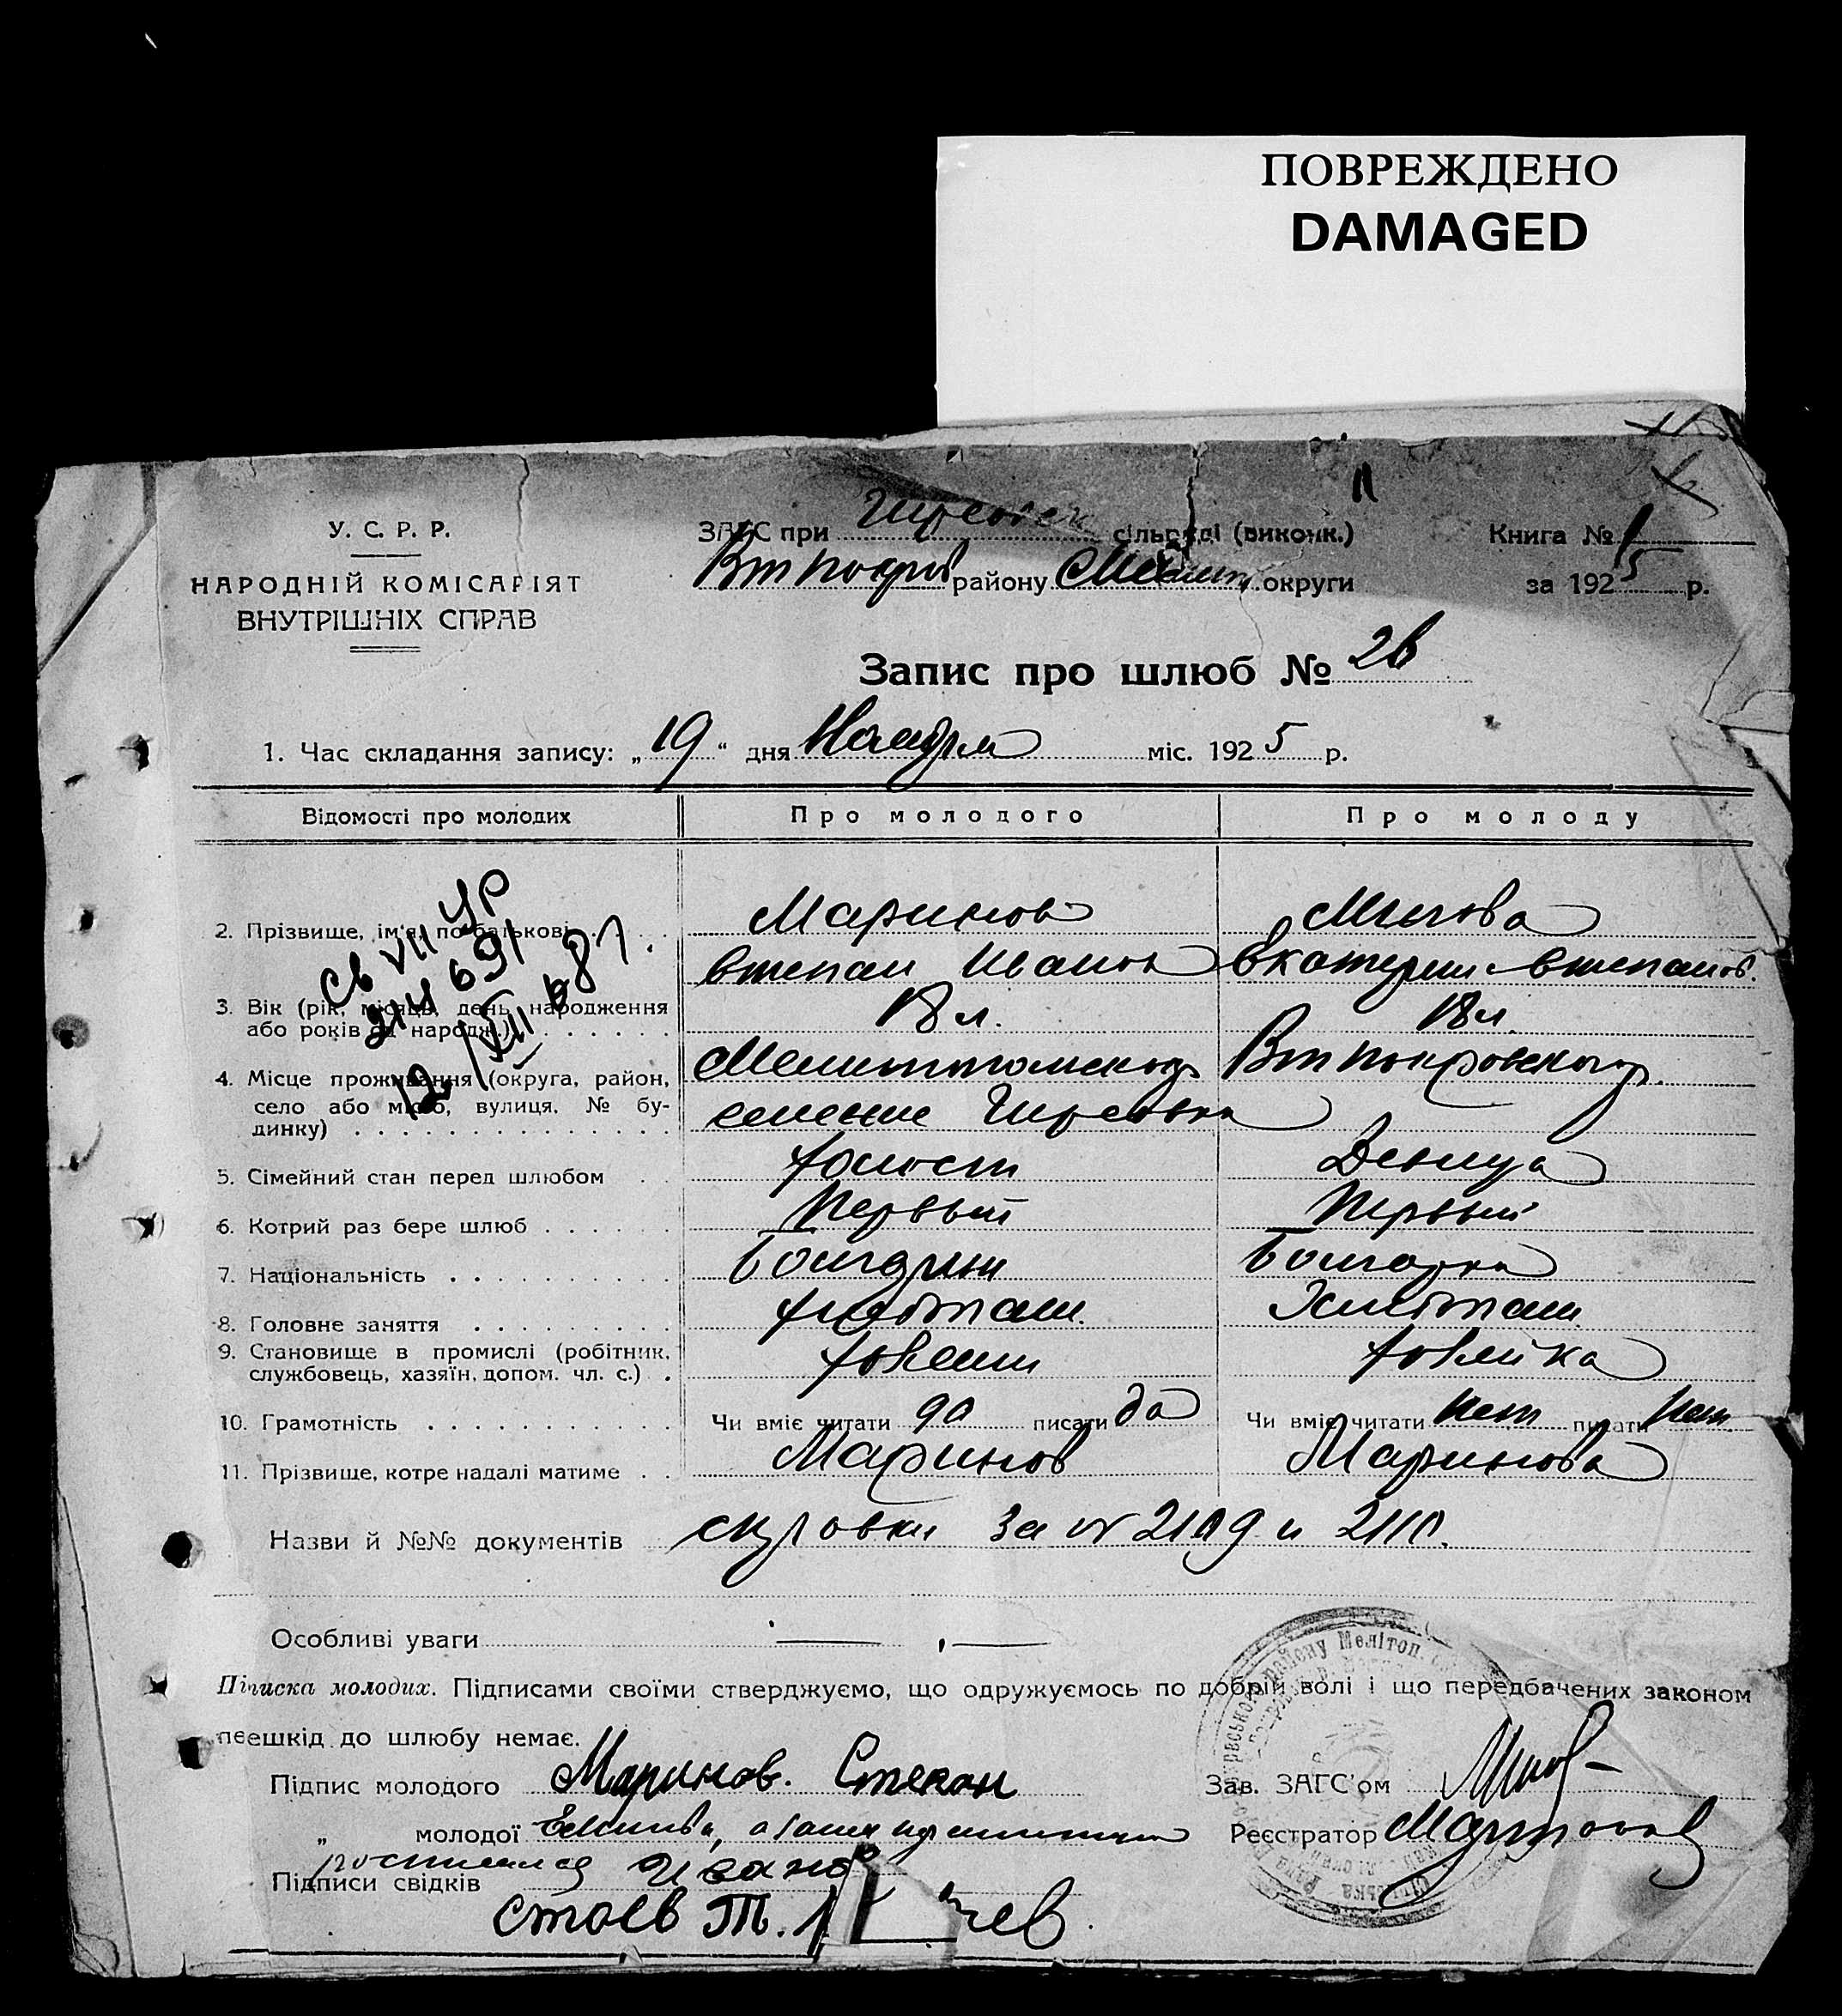 ПОВРЕЖДЕНО
DAMAGED
У. С. Р. Р.
НАРОДНІЙ КОМІСАРІЯТ
ВНУТРІШНІХ СПРАВ
ЗАГС при сільраді (виконк.)
району округи
Книга № 1
за 1925 р.
Запис про шлюб № 26
1. Час складання запису: „19“ дня Ноября міс. 1925 р.
Відомості про молодих
Про молодого
Про молоду
2. Прізвище, ім'я, по батькові
Маринов
Степан Иванов
Екатерина Степанов.
3. Вік (рік, місяць, день народження
або років од народж.)
18 л.
18 л.
4. Місце проживання (округа, район,
село або місто, вулиця, № бу-
динку)
Мелитопольского
Вт Покровского р.
селение Гирсовка
5. Сімейний стан перед шлюбом
холост
Девица
6. Котрий раз бере шлюб
Первый
Первый
7. Національність
Болгарин
Болгарка
8. Головне заняття
хлебопаш.
Хлебопаш.
9. Становище в промислі (робітник,
службовець, хазяїн, допом. чл. с.)
хозяин
хозяйка
10. Грамотність
Чи вміє читати да писати да
Чи вміє читати нет писати нет
11. Прізвище, котре надалі матиме
Маринов
Маринова
Назви й №№ документів за № 2109 и 2110.
Особливі уваги
Підписка молодих. Підписами своїми стверджуємо, що одружуємось по добрій волі і що передбачених законом
перешкід до шлюбу немає.
Підпис молодого Маринов. Степан
Зав. ЗАГС'ом
„ молодої
Реєстратор
Підписи свідків
Стоев Т.